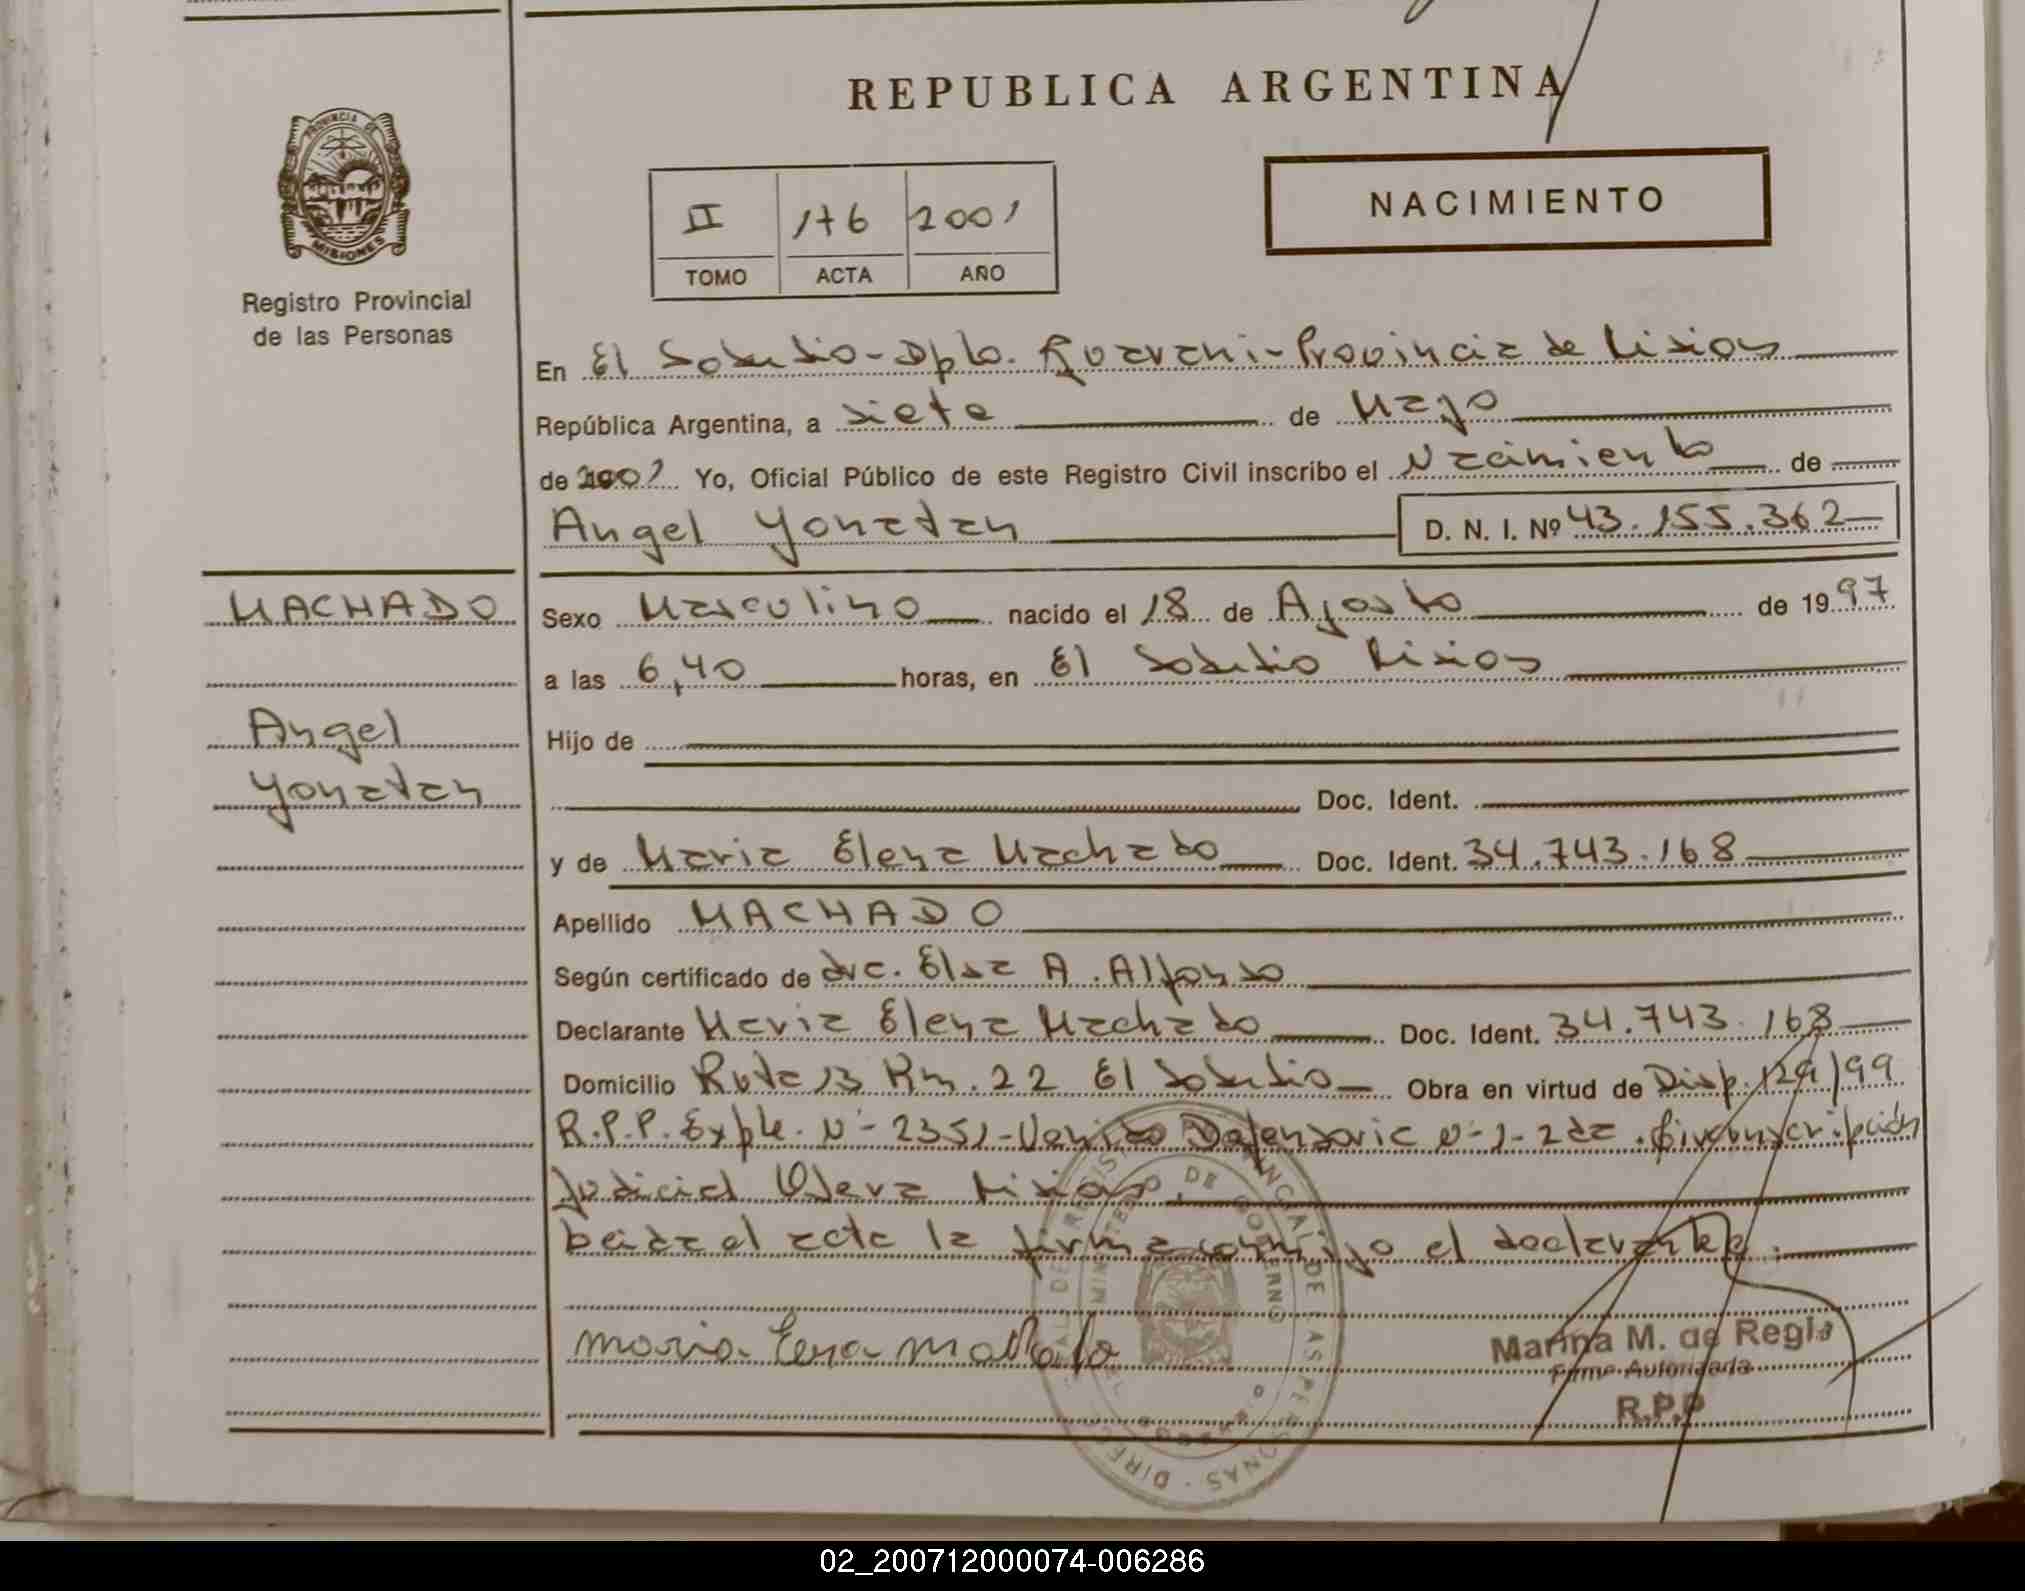 REPUBLICA ARGENTINA
PROVINCIA DE
MISIONES
Registro Provincial
de las Personas
NACIMIENTO
II 176 2001
TOMO ACTA AÑO
En El Soberbio - Dpto. Guarani - Provincia de Misiones
República Argentina, a siete de Mayo
de 2001 Yo, Oficial Público de este Registro Civil inscribo el Nacimiento de
Angel Yonatan D. N. I. Nº 43.155.362
MACHADO
Angel
Yonatan
Sexo Masculino nacido el 18 de Agosto de 1997
a las 6,40 horas, en El Soberbio Misiones
Hijo de
Doc. Ident.
y de Maria Elena Machado Doc. Ident. 34.743.168
Apellido MACHADO
Según certificado de dra. Elsa A. Alfonso
Declarante Maria Elena Machado Doc. Ident. 34.743.168
Domicilio Ruta 13 Km. 22 El Soberbio Obra en virtud de Disp. 129/99
R.P.P. Expte. Nº - 2351 - Defensoria Nº - 1 - 2da. Circunscripción
Judicial Obera Misiones.
el acta la firma conmigo el declarante.
Maria
Marina M. de Regis
Firma Autorizada
R.P.P
02_200712000074-006286